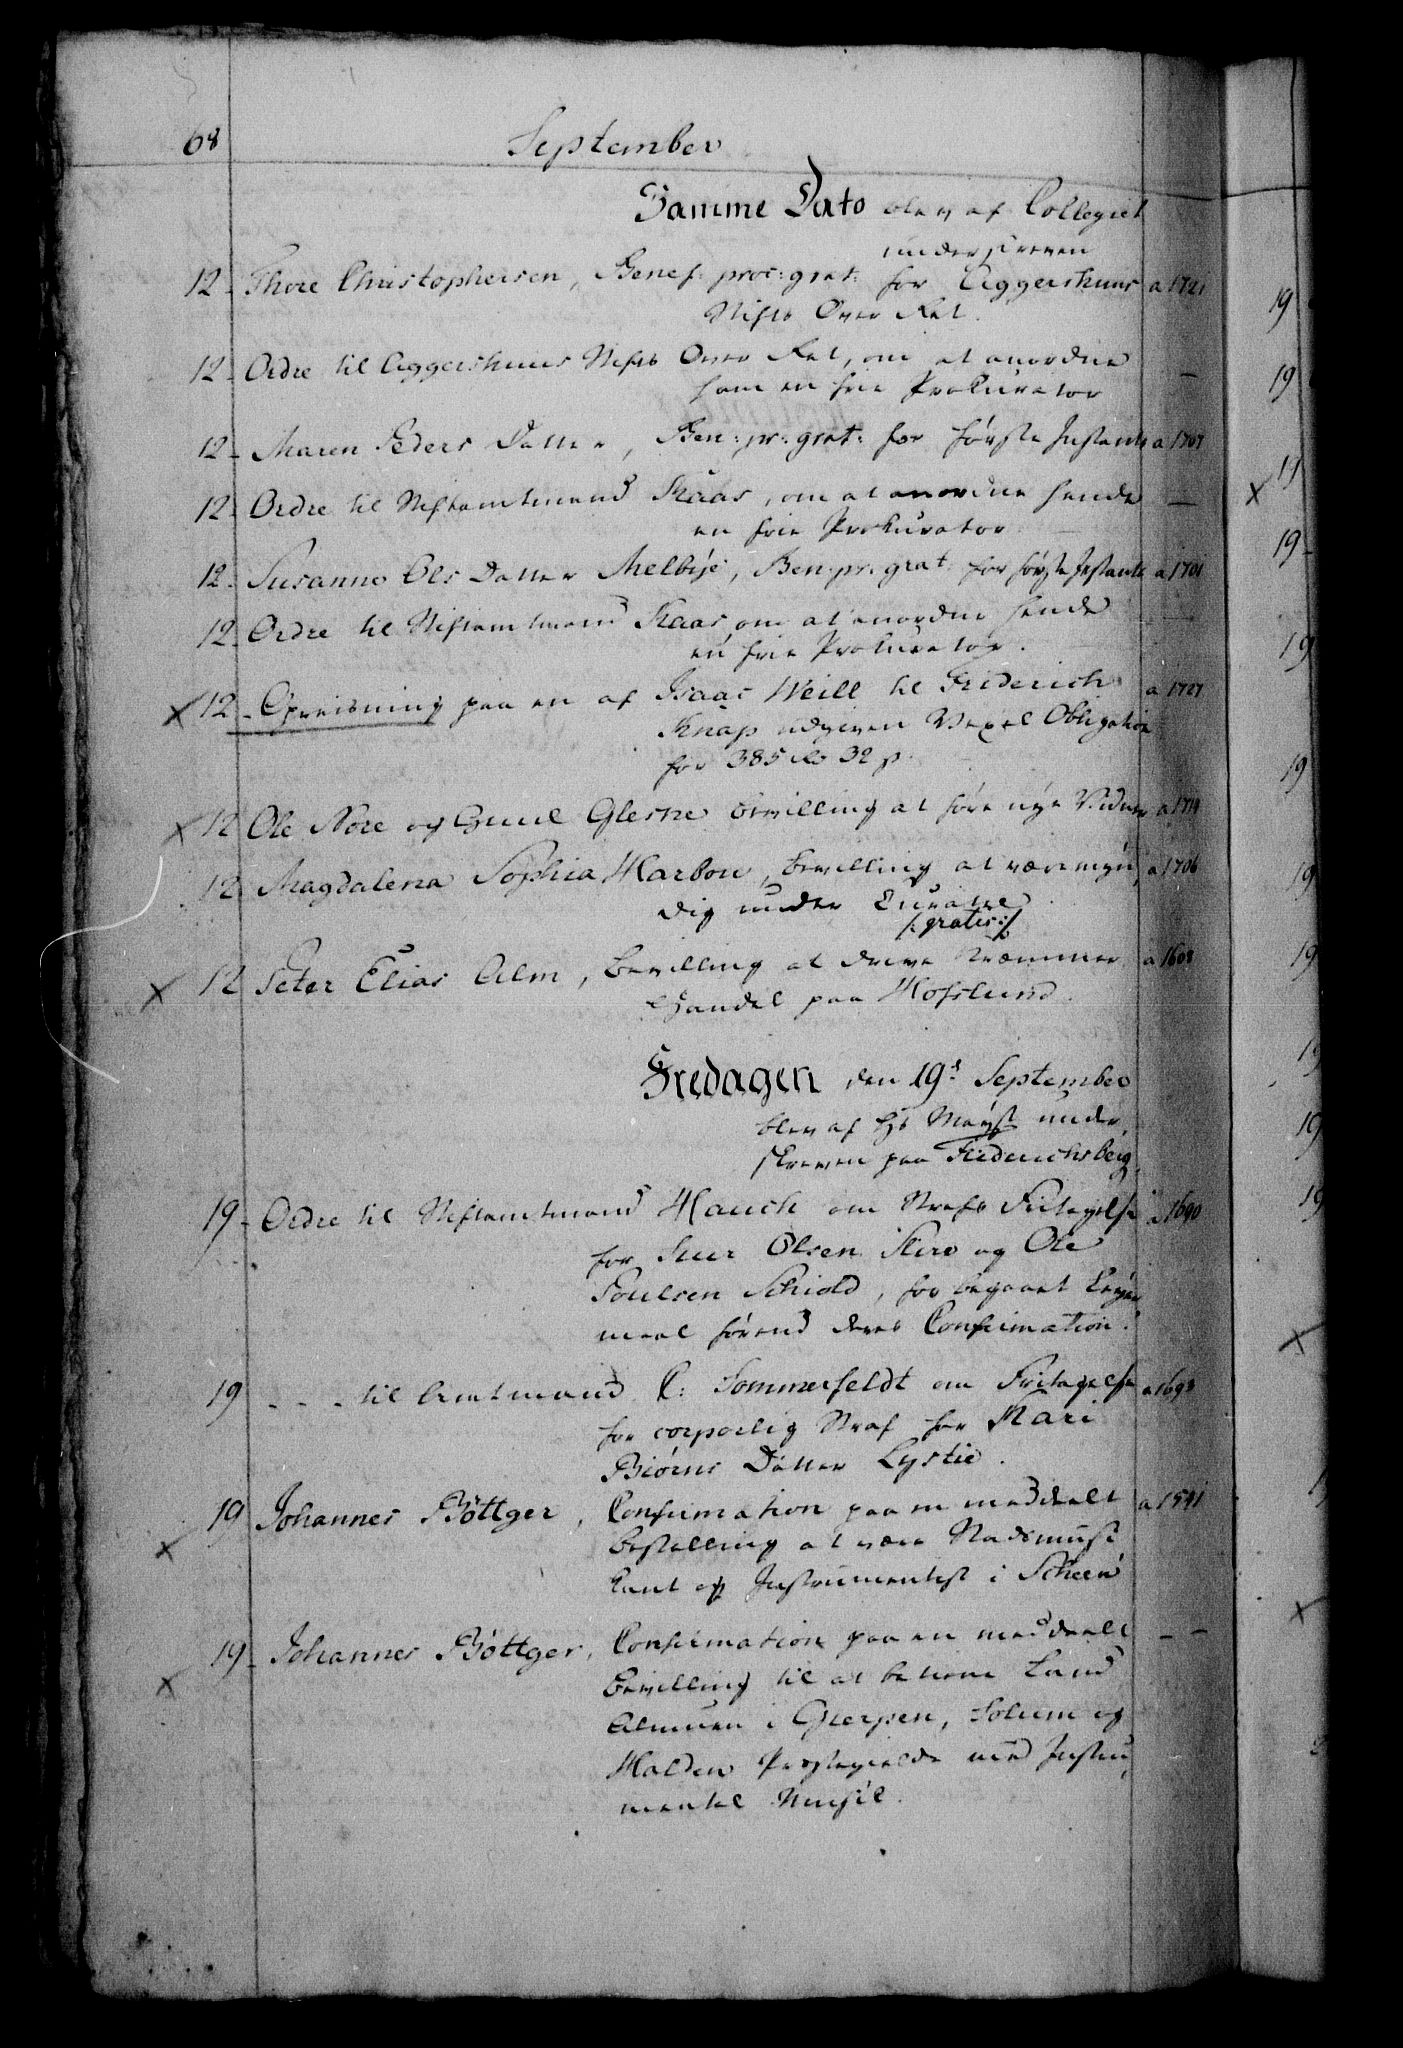 68 September
Samme Dato blev af Collegiet
underskreven
12 - Thore Christophersen, Benef: proc: grat: for Aggershuus a 1721
Stifts Over Ret.
12 - Ordre til Aggershuus Stifts Over Ret, om at anordne —
ham en frie Prokurator
12 - Maren Peders Datter, Ben: pr: grat: for første Instants a 1707
12 - Ordre til Stiftamtmand Kaas, om at anordne hende —
en frie Prokurator
12 - Susanne Ols Datter Melbye, Ben: pr: grat: for første Instants a 1701
12 - Ordre til Stiftamtmand Kaas om at anordne hende —
en frie Prokurator.
x 12 - Opreisning paa en af Isaac Weill til Friderich a 1727
Knap udgiven Vexel Obligation
for 385 rd 32 s.
x 12 Ole Nore og Gunil Glesne bevilling at føre nye Vidner a 1714
12 Magdalena Sophia Harbou, bevilling at være myn, a 1706
dig under Curatel
/: gratis :/
x 12 Peter Elias Alm, bevilling at drive Kræmmer a 1608
Handel paa Hofslund.
Fredagen den 19d September
blev af Hs Mayst under,
skreven paa Friderichsberg.
19 - Ordre til Stiftamtmand Hauch om Strafs Fritagelse a 1690
for Siur Olsen Skiro og Ole
Poulsen Schiold, for begaaet Leyer
maal førend deres Confirmation.
19 - - - til Amtmand C: Sommerfeldt om Fritagelse a 1693
for corporlig Straf for Kari
Biørns Datter Lystie.
x 19 Johannes Bøttger, Confirmation paa en meddeelt a 1541
bestalling at være Stadsmusi
kant og Instrumentist i Scheen
x 19 - Johannes Bøttger, Confirmation paa en meddeelt - -
bevilling til at betiene Land
Almuen i Gierpen, Solum og
Holden Præstegielde med Instru,
mental Musik.